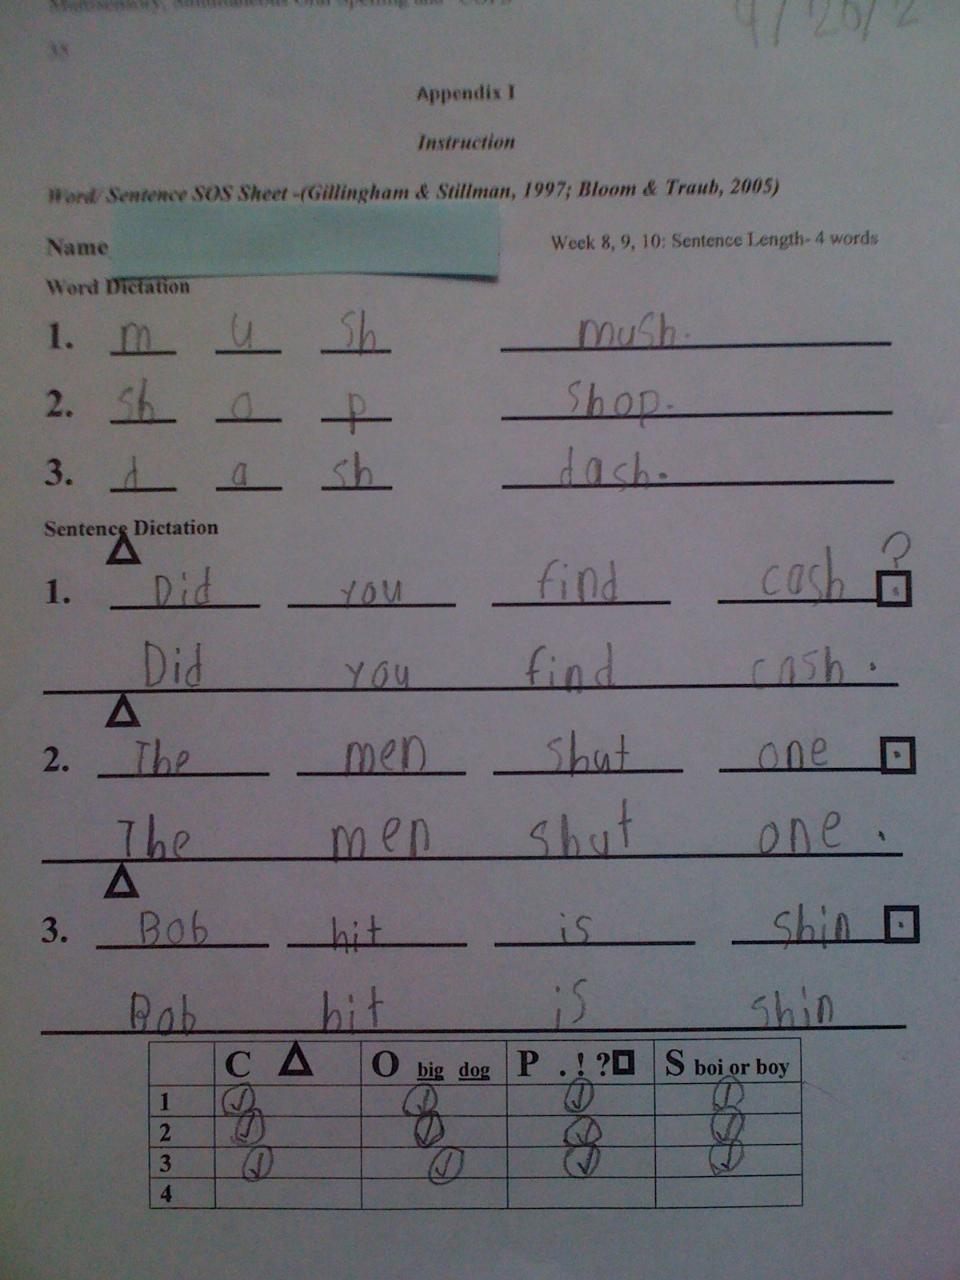 Multisensory, Simultaneous Oral Spelling and COPS
35
Appendix I
Instruction
Word/ Sentence SOS Sheet -(Gillingham & Stillman, 1997; Bloom & Traub, 2005)
Name Week 8, 9, 10: Sentence Length- 4 words
Word Dictation
1. m u sh mush.
2. sh o p shop.
3. d a sh dash.
Sentence Dictation
?
1. Did you find cash .
Did you find cash .
2. The men shut one .
The men shut one .
3. Bob hit is shin .
Bob hit is shin
C Δ O big dog P . ! ? S boi or boy
1 ✓ ✓ ✓ ✓
2 ✓ ✓ ✓ ✓
3 ✓ ✓ ✓ ✓
4